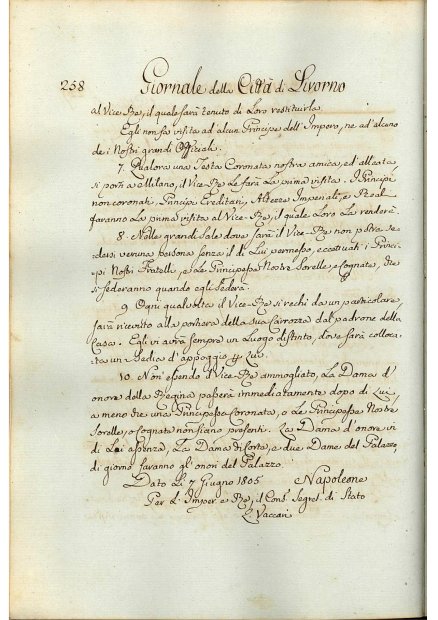 258 Giornale della Città di Livorno
al Vice-Re, il quale sarà tenuto di Loro restituirla.
Egli non fa visita ad alcun Principe dell'Impero, ne ad alcuno
de i Nostri grandi Offiziali.
7. Qualora una Testa Coronata nostra amica, ed alleata
si porti a Milano, il Vice-Re Le farà La prima visita. I Principi
non coronati, Principi Ereditarj, Altezze Imperiali, e Reali
faranno La prima visita al Vice-Re, il quale Loro La renderà.
8. Nelle grandi Sale dove sarà il Vice-Re non potrà se-
dersi veruna persona senza il di Lui permesso, eccettuati i Princi-
pi Nostri Fratelli, e Le Principesse Nostre Sorelle, e Cognate, che
si sederanno quando egli sederà.
9. Ogni qual volta il Vice-Re si rechi da un particolare,
sarà ricevuto alla portiera della sua Carrozza dal padrone della
Casa. Egli vi avrà sempre un Luogo distinto, dove sarà colloca-
ta una Sedia d'appoggio p Lui.
10. Non essendo il Vice-Re ammogliato, La Dama d'
onore della Regina passerà immediatamente dopo di Lui,
a meno che una Principessa Coronata, o Le Principesse Nostre
Sorelle, o Cognate non siano presenti. La Dama d'onore in
di Lei assenza, La Dama di Corte, e due Dame del Palazzo,
di giorno faranno gl'onori del Palazzo.
Dato Lì 7 Giugno 1805 Napoleone
Per L'Imper.e e Re, il Cons. Segret. di Stato
L. Vaccari